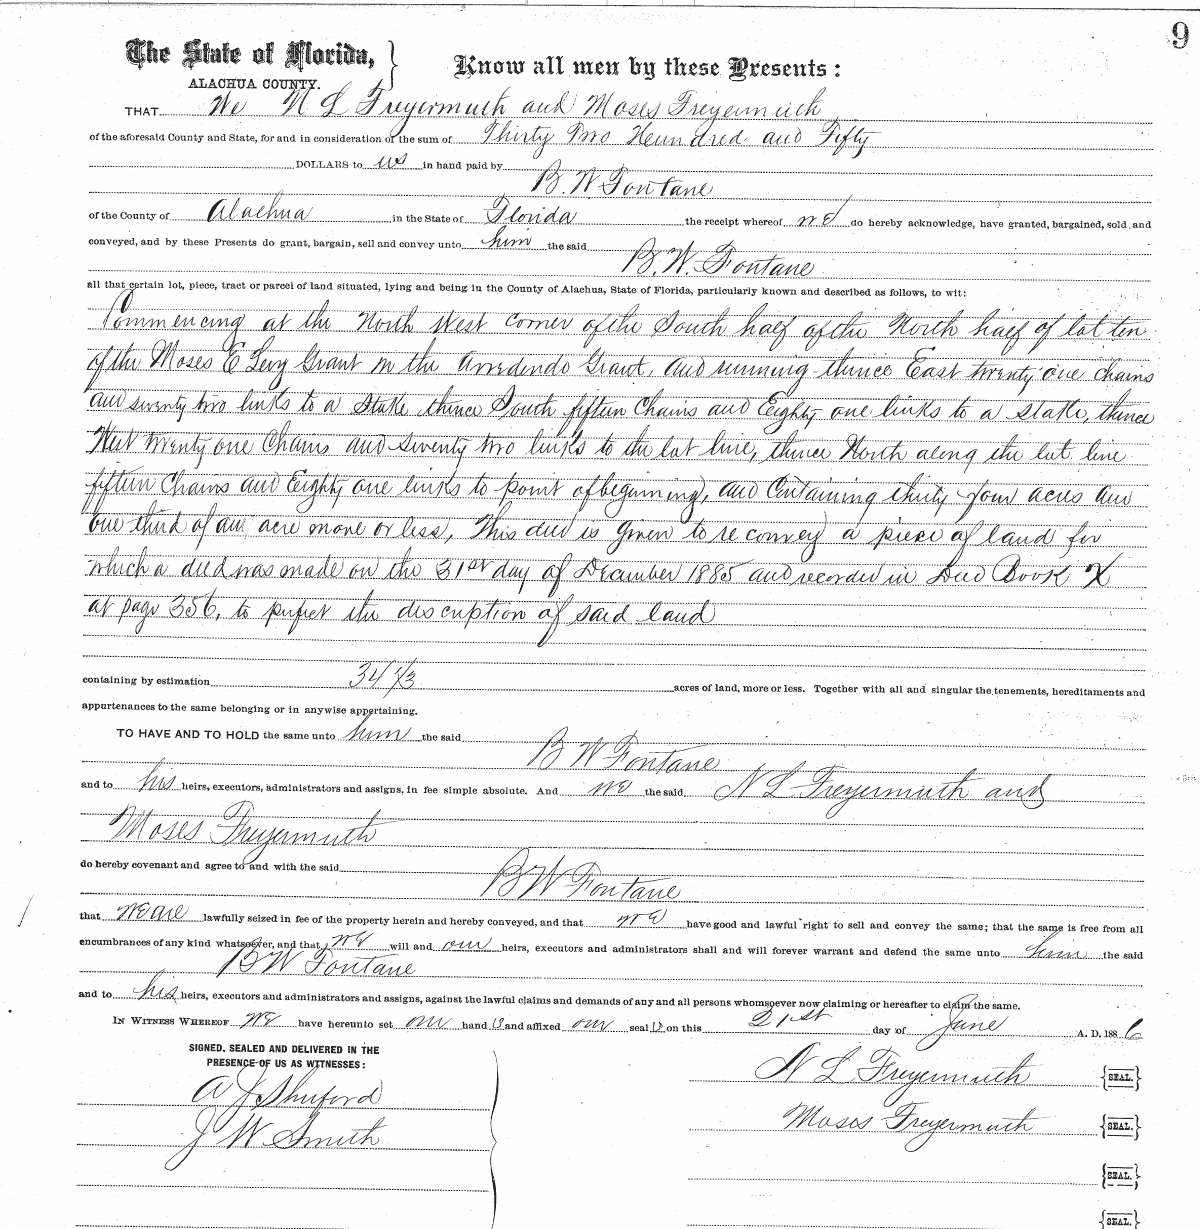 9
The State of Florida, }
ALACHUA COUNTY.
Know all men by these Presents:
THAT We N L Freyermuth and Moses Freyermuth
of the aforesaid County and State, for and in consideration of the sum of Thirty Two Hundred and Fifty
DOLLARS to us in hand paid by
B. W Fontane
of the County of Alachua in the State of Florida the receipt whereof we do hereby acknowledge, have granted, bargained, sold and
conveyed, and by these Presents do grant, bargain, sell and convey unto him the said
B. W. Fontane
all that certain lot, piece, tract or parcel of land situated, lying and being in the County of Alachua, State of Florida, particularly known and described as follows, to wit:
Commencing at the North West corner of the South half of the North half of lot ten
of the Moses E Levy Grant in the Arredondo Grant, and running thence East twenty one chains
and seventy two links to a Stake, thence South fifteen Chains and Eighty one links to a stake, thence
West twenty one Chains and seventy two links to the lot line, thence North along the lot line
fifteen Chains and Eighty one links to point of beginning, and Containing thirty four acres and
one third of an acre more or less, This deed is given to re convey a piece of land for
which a deed was made on the 31st day of December 1885 and recorded in Deed Book X
at page 356, to perfect the discription of said land
containing by estimation 34 1/3 acres of land, more or less. Together with all and singular the tenements, hereditaments and
appurtenances to the same belonging or in anywise appertaining.
TO HAVE AND TO HOLD the same unto him the said
B W Fontane
and to his heirs, executors, administrators and assigns, in fee simple absolute. And we the said N L Freyermuth and
Moses Freyermuth
do hereby covenant and agree to and with the said
B W Fontane
that we are lawfully seized in fee of the property herein and hereby conveyed, and that we have good and lawful right to sell and convey the same; that the same is free from all
encumbrances of any kind whatsoever, and that we will and our heirs, executors and administrators shall and will forever warrant and defend the same unto him the said
B W Fontane
and to his heirs, executors and administrators and assigns, against the lawful claims and demands of any and all persons whomsoever now claiming or hereafter to claim the same.
IN WITNESS WHEREOF we have hereunto set our hand s and affixed our seal s on this 21st day of June A. D. 1886
SIGNED, SEALED AND DELIVERED IN THE
PRESENCE OF US AS WITNESSES:
A J Shuford
J W Smith
N L Freyermuth {SEAL.}
Moses Freyermuth {SEAL.}
{SEAL.}
{SEAL.}